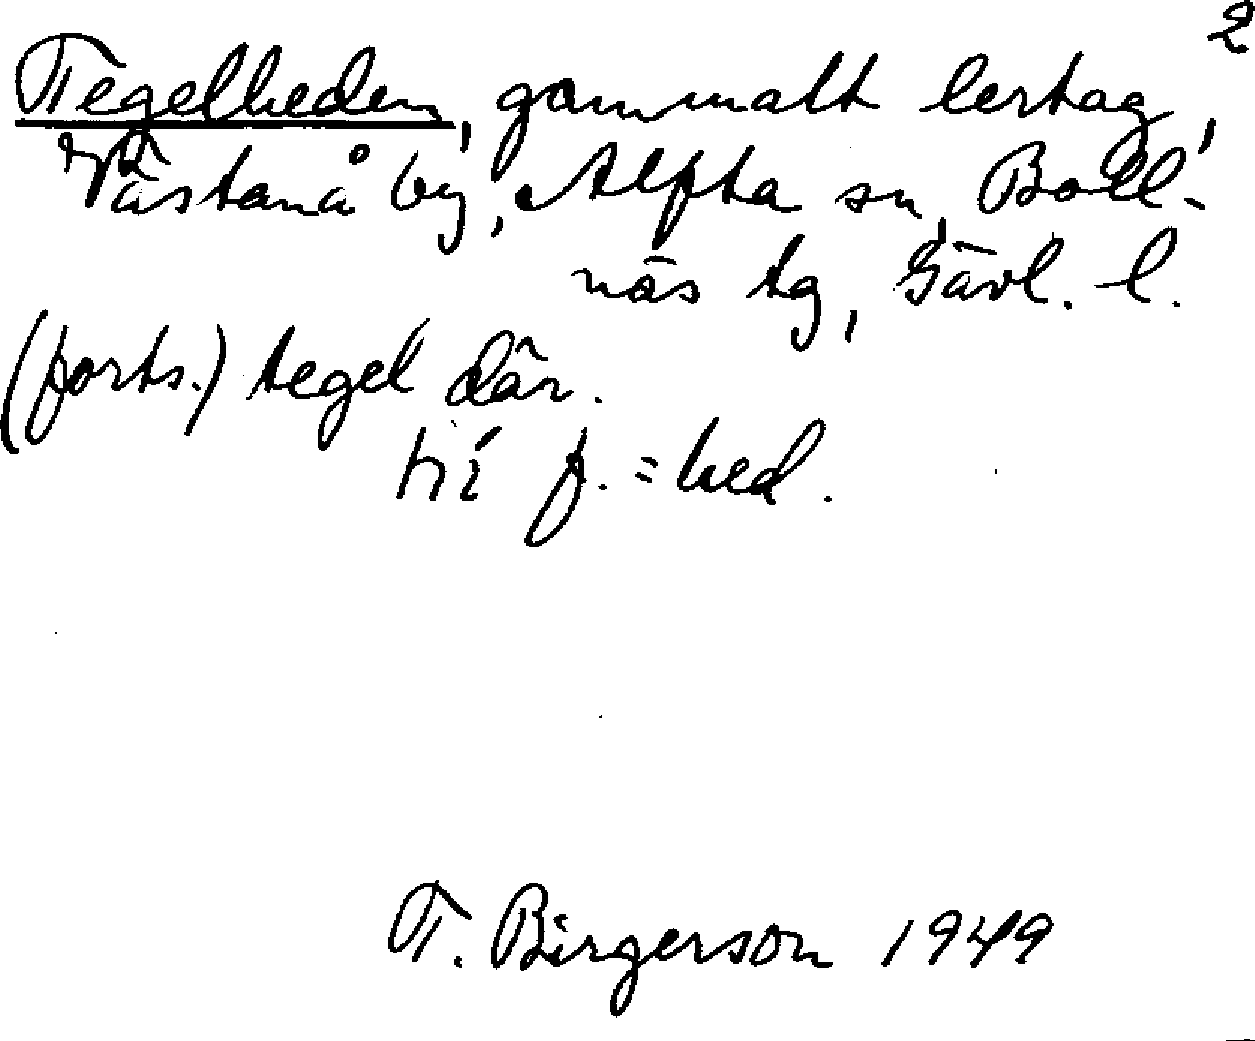 2
Tegelheden, gammalt lertag,
Västanå by, Alfta sn, Boll-
näs tg, Gävl. l.
(forts.) tegel där.
hí f. = hed.
T. Birgerson 1949